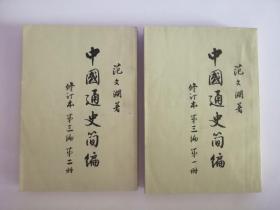 范文澜著
中國通史简编
修订本 第三编 第二册
范文澜著
中國通史简编
修订本 第三编 第一册